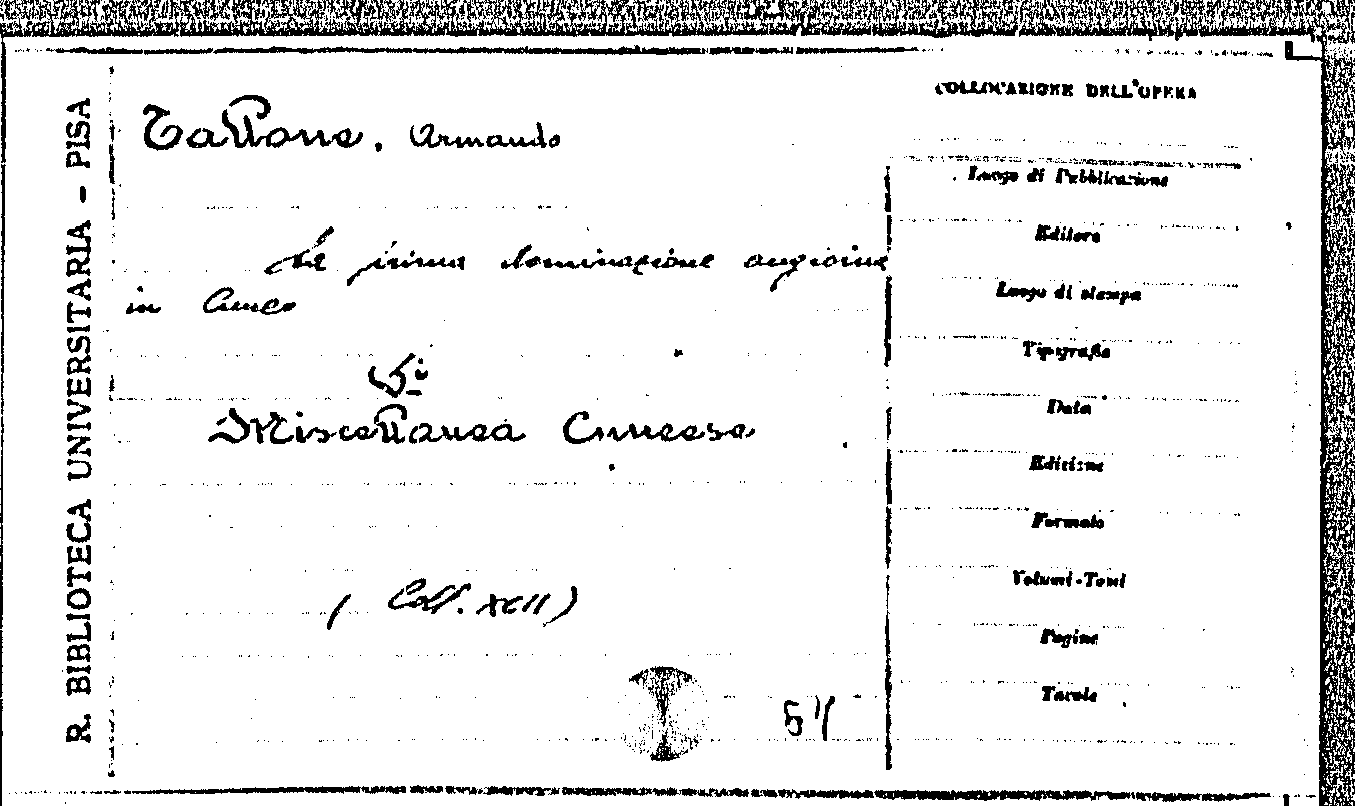 R. BIBLIOTECA UNIVERSITARIA - PISA
Tallone, Armando
La prima dominazione angioina
in Cuneo
Si
Miscellanea Cuneese
( Coll. XCII )
COLLOCAZIONE DELL'OPERA
Luogo di Pubblicazione
Editore
Luogo di stampa
Tipografia
Data
Edizione
Formato
Volumi-Tomi
Pagine
Tavole